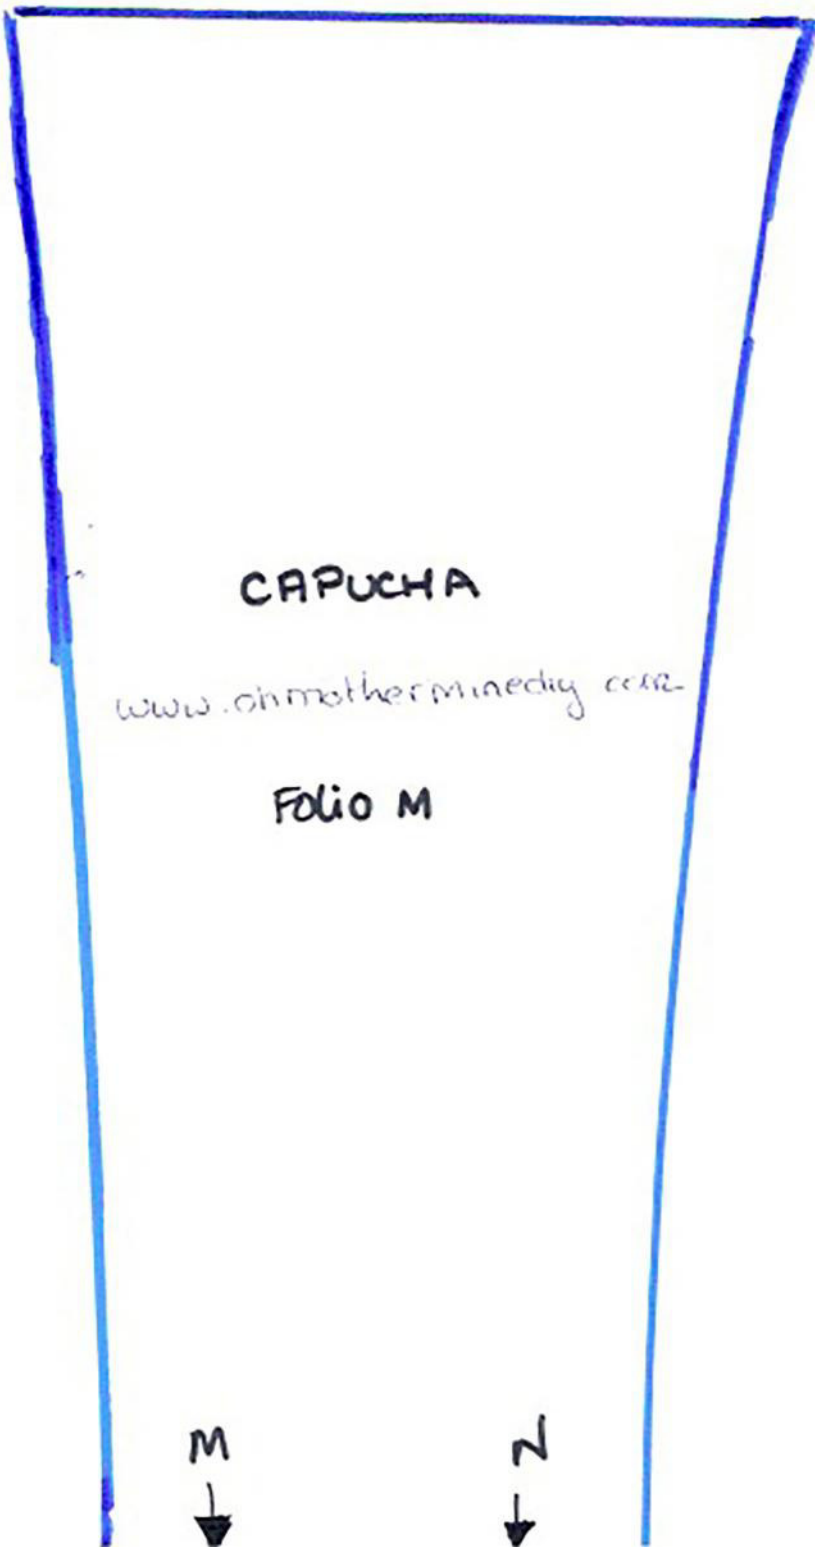 CAPUCHA
www.ohmotherminediy.com
Folio M
M N